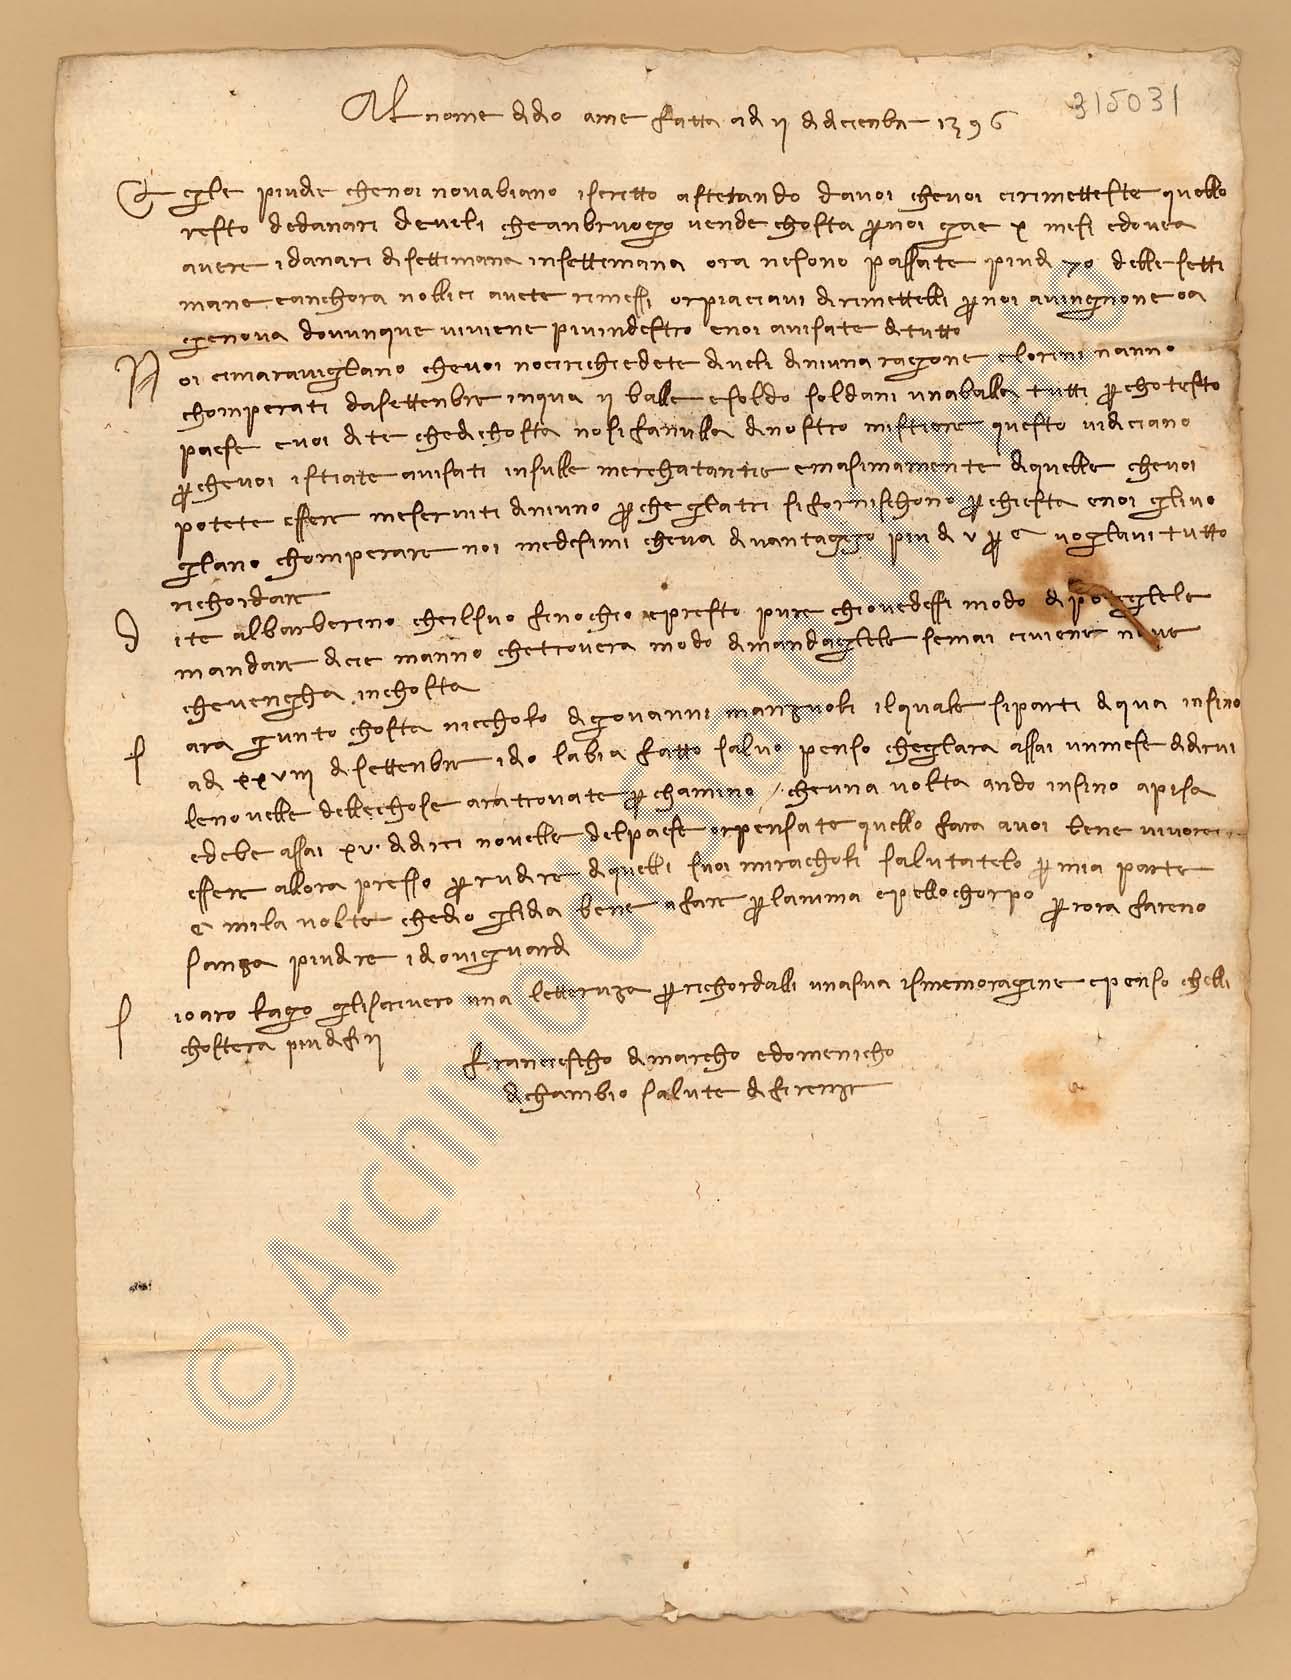 315031
Al nome di dio ame fatta a di II di dicienbre 1396
Egle piudie che noi novabiano iscritto aspetando davoi chevoi cirimetteste quello
resto dedanari develi che anbruogo vende chosta p noi gae x mesi e dovea
avere i danari di settimana insettimana ora nesono passate piu di 70 delle setti
mane e anchora nollici avete rimessi or piacciavi dirimettelli p noi avingnione o a
gienova dovunque viviene piuindestro e noi avisate ditutto
Noi cimaravigliano chevoi nocirichiedete diveli diniuna ragone e lorini nanno
chomperati dasettenbre inqua II balle e soldo soldani una balla tutti p chotesto
paese e voi dite chedichosta nosi fanulla dinostro mistiere questo vidiciano
p chevoi istiate avisati insulle merchatantie e masimamente diquelle chevoi
potete essere meserviti diniuno p che glatri sifornischono p chiesta e noi glivo
gliano chomperare noi medesimi cheva divantaggo piu di V p C voglavi tutto
richordare
Dite albarberino cheilsuo finochio e presto pure chiovedessi modo dipoteglele
mandare dicie manno chetrovera modo dimandaglele semai civiene nave
chevengha inchosta
Sara gunto chosta niccholo di govanni manzuoli ilquale siparti diqua insino
adi XXVIII di settenbre idio labia fatto salvo penso cheglara assai unmese didirvi
lenovelle dellechose aratrovate p chamino / cheuna volta ando insino apisa
edebe assai XV di dirci novelle delpaese or pensate quello fara avoi bene vivorei
essere allora presso p rudire diquelli suoi mirachuli salutatelo p mia parte
C mila volte chedio glidia bene afare p lanima epello chorpo p rora fareno
sanza piudire idioviguardi
Sioaro lago gliscrivero una letteruza p richordalli unasua ismemoragine e penso chelli
chostera piu di f II
francescho dimarcho edomenicho
dichambio salute difirenze
© Archivio di Stato di Prato